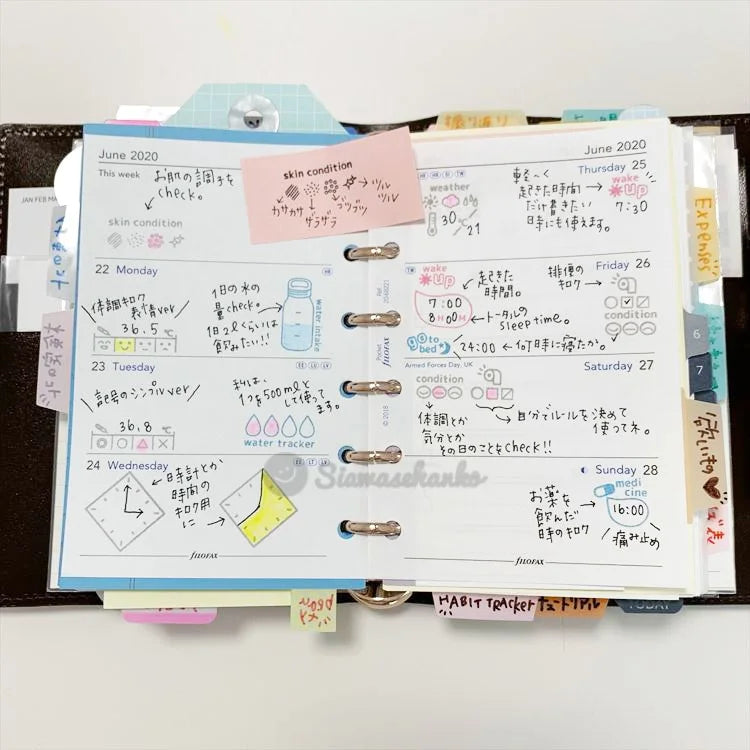 June 2020
This week
お肌の調子を
check。
skin condition
skin condition
カサカサ
ザラザラ
ブツブツ
ツル
ツル
22 Monday
体調キロク
表情ver
36.5
1日の水の
量check。
1日2Lくらいは
飲みたい!!
water intake
23 Tuesday
記号のシンプルver
36.8
私は、
1つを500mlと
して使って
ます。
water tracker
24 Wednesday
時計とか
時間の
キロク用
に
filofax
June 2020
Thursday 25
weather
30
21
軽〜く
起きた時間
だけ書きたい
時にも使えます。
wake
up
7:30
Friday 26
wake
up
7:00
8HOOM
起きた
時間。
トータルの
sleep time。
排便の
キロク
condition
go to
bed
24:00
何時に寝たか。
Armed Forces Day, UK
Saturday 27
condition
体調とか
気分とか
その日のことをcheck!!
自分でルールを決めて
使ってネ。
Sunday 28
お薬を
飲んだ
時のキロク
medi
cine
16:00
痛み止め
filofax
Siawasehanko
Pocket
filofax
© 2018
JAN FEB MA
Expenses
6
7
HABIT TRACKER
チュートリアル
TODAY